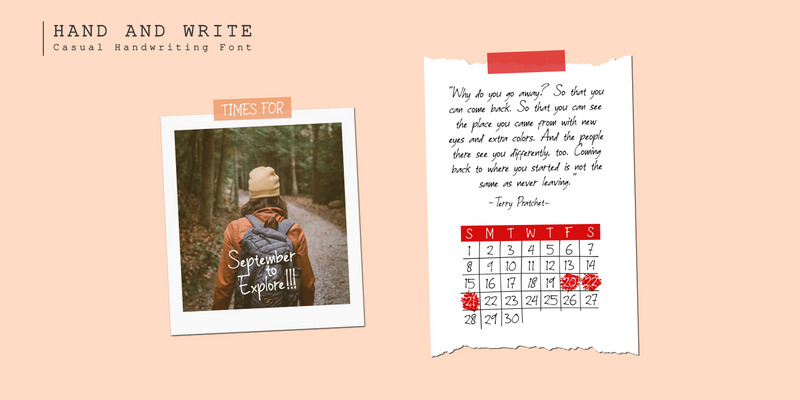 HAND AND WRITE
Casual Handwriting Font
TIMES FOR
September
to
Explore!!!
"Why do you go away? So that you
can come back. So that you can see
the place you came from with new
eyes and extra colors. And the people
there see you differently, too. Coming
back to where you started is not the
same as never leaving."
-Terry Pratchet-
S M T W T F S
1 2 3 4 5 6 7
8 9 10 11 12 13 14
15 16 17 18 19 20 22
21 22 23 24 25 26 27
28 29 30